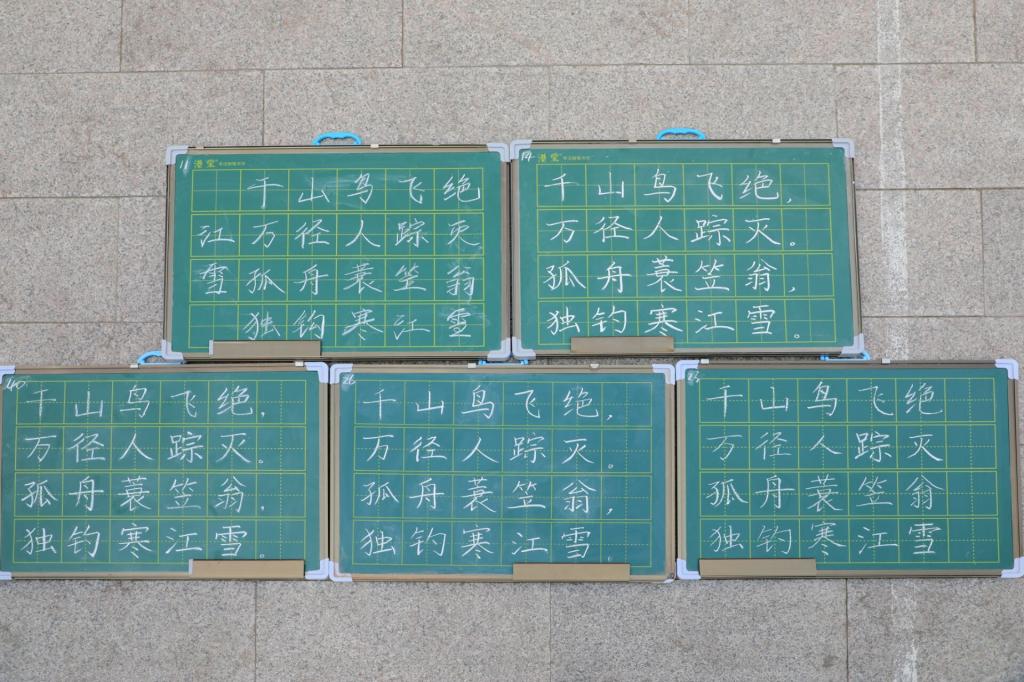 11 港堂
千山鸟飞绝
江万径人踪灭。
雪孤舟蓑笠翁
独钩寒江雪
19 港堂
千山鸟飞绝,
万径人踪灭。
孤舟蓑笠翁,
独钓寒江雪。
40
千山鸟飞绝,
万径人踪灭。
孤舟蓑笠翁,
独钓寒江雪。
26
千山鸟飞绝,
万径人踪灭。
孤舟蓑笠翁,
独钓寒江雪。
千山鸟飞绝
万径人踪灭
孤舟蓑笠翁
独钓寒江雪